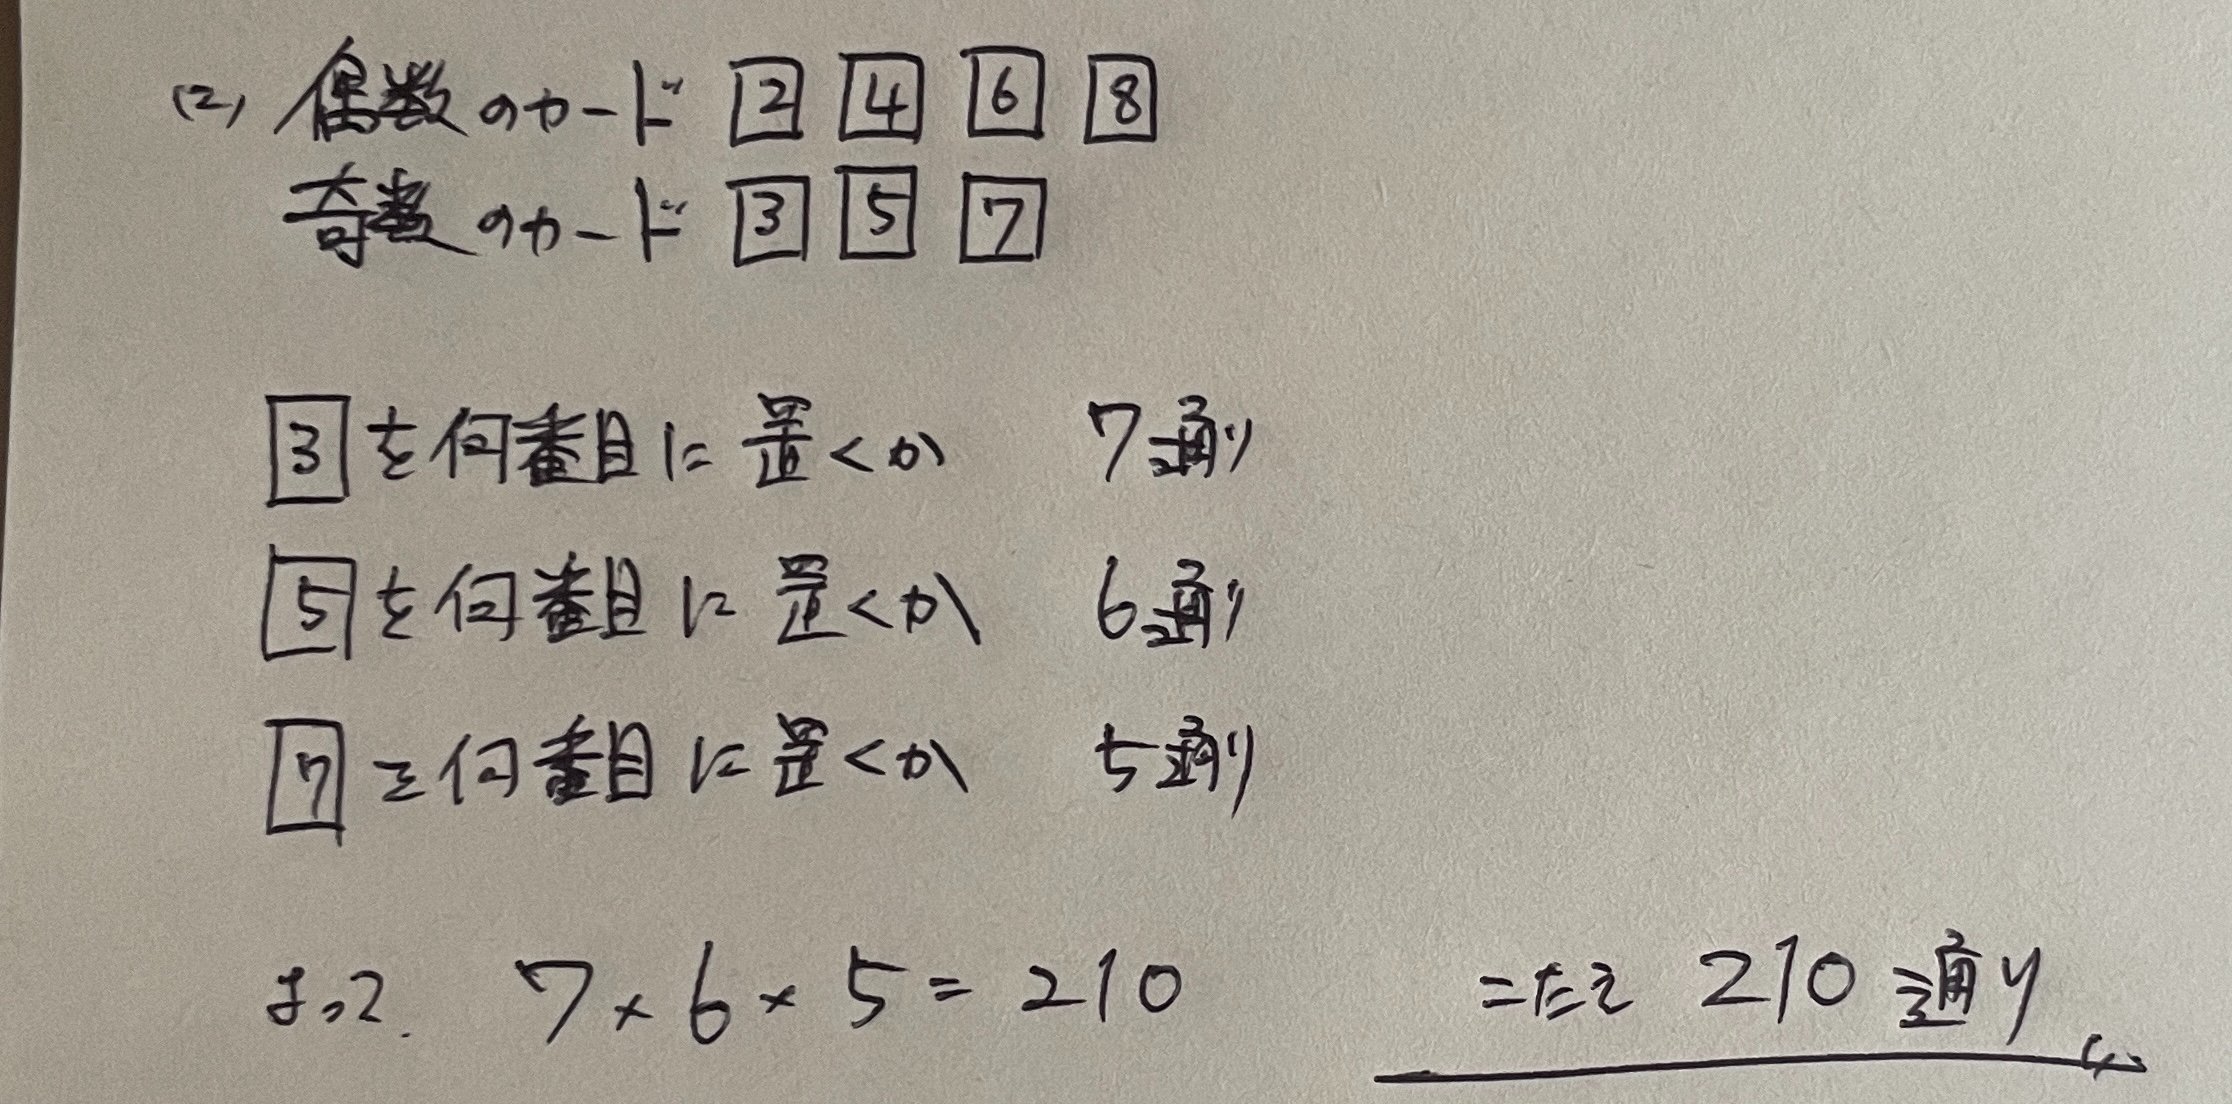 (2) 偶数のカード 2 4 6 8
奇数のカード 3 5 7
3を何番目に置くか 7通り
5を何番目に置くか 6通り
7を何番目に置くか 5通り
よって、 7×6×5=210 こたえ 210通り